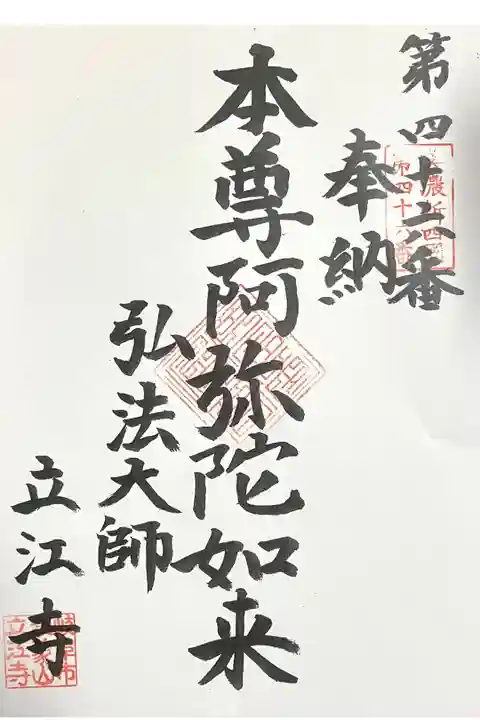 第四十六番
奉納
本尊阿弥陀如来
弘法大師
立江寺
岐阜市
立江寺